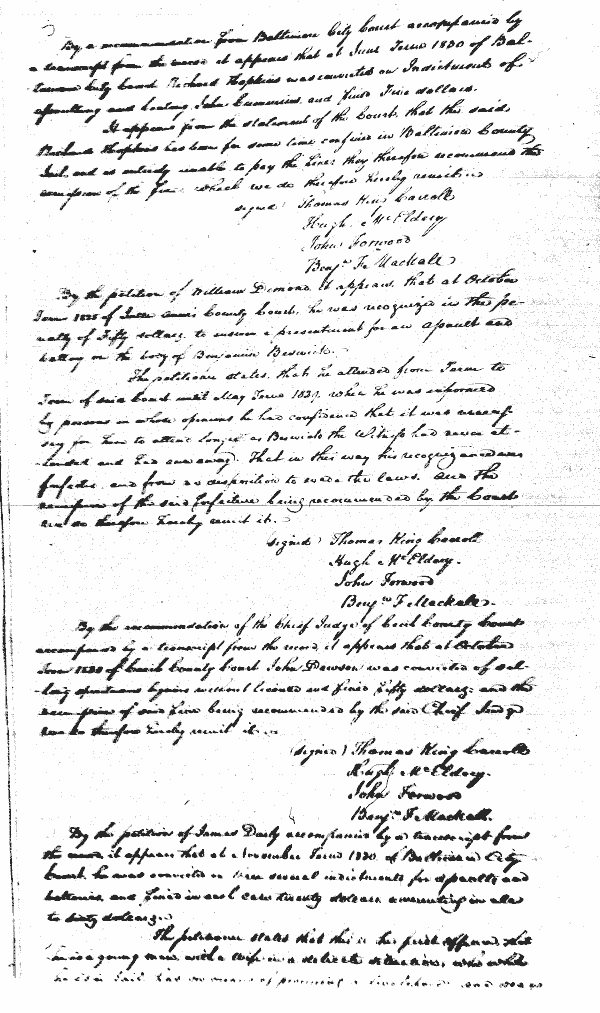 By a recommendation from Baltimore City Court accompanied by
a transcript from the record it appears that at June Term 1830 of Bal-
timore City Court Richard Hopkins was convicted on Indictment of
assaulting and beating John Cummins and fined Five dollars.
It appears from the statement of the Court, that the said
Richard Hopkins has been for some time confined in Baltimore County
Jail, and is entirely unable to pay the fine; they therefore recommend the
remission of the fine, which we do therefore hereby remit
signed Thomas King Carroll
Hugh McEldery
John Forwood
Benjn. F. Mackall
By the petition of William Dimond it appears, that at October
Term 1828 of Queen Anns County Court, he was recognized in the pe-
nalty of Fifty dollars, to answer a presentment for an assault and
battery on the body of Benjamin Beswick.
The petitioner states, that he attended from Term to
Term of said Court until May Term 1829, when he was informed
by persons in whose opinions he had confidence that it was unneces-
sary for him to attend longer as Beswick the Witness had never at-
tended and had runaway. That in this way his recognizance was
forfeited, and from no disposition to evade the laws. And the
remission of the said forfeiture being recommended by the Court
we do therefore hereby remit it.
(signed) Thomas King Carroll
Hugh McEldery.
John Forwood
Benjn. F. Mackall.
By the recommendation of the Chief Judge of Cecil County Court
accompanied by a transcript from the record, it appears that at October
Term 1830 of Cecil County Court John Dawson was convicted of sel-
ling spirituous liquors without license and fined fifty dollars; and the
remission of said fine being recommended by the said Chief Judge
we do therefore hereby remit it.
(signed) Thomas King Carroll
Hugh McEldery.
John Forwood
Benjn. F. Mackall.
By the petition of James Darly accompanied by a transcript from
the record it appears that at November Term 1830 of Baltimore City
Court, he was convicted on three several indictments for assaults and
batteries, and fined in each case twenty dollars amounting in all
to sixty dollars.
The petitioner states that this is his first offence, that
he is a young man with a wife in a delicate situation, who while
he is in Jail has no means of procuring a livelihood and